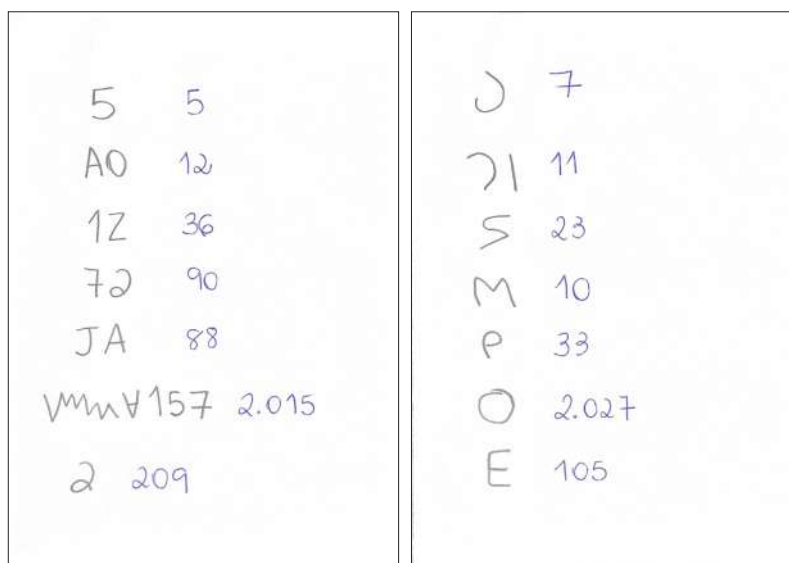 5 5
AO 12
1Z 36
72 90
JA 88
157 2.015
2 209
7
11
S 23
M 10
P 33
O 2.027
E 105